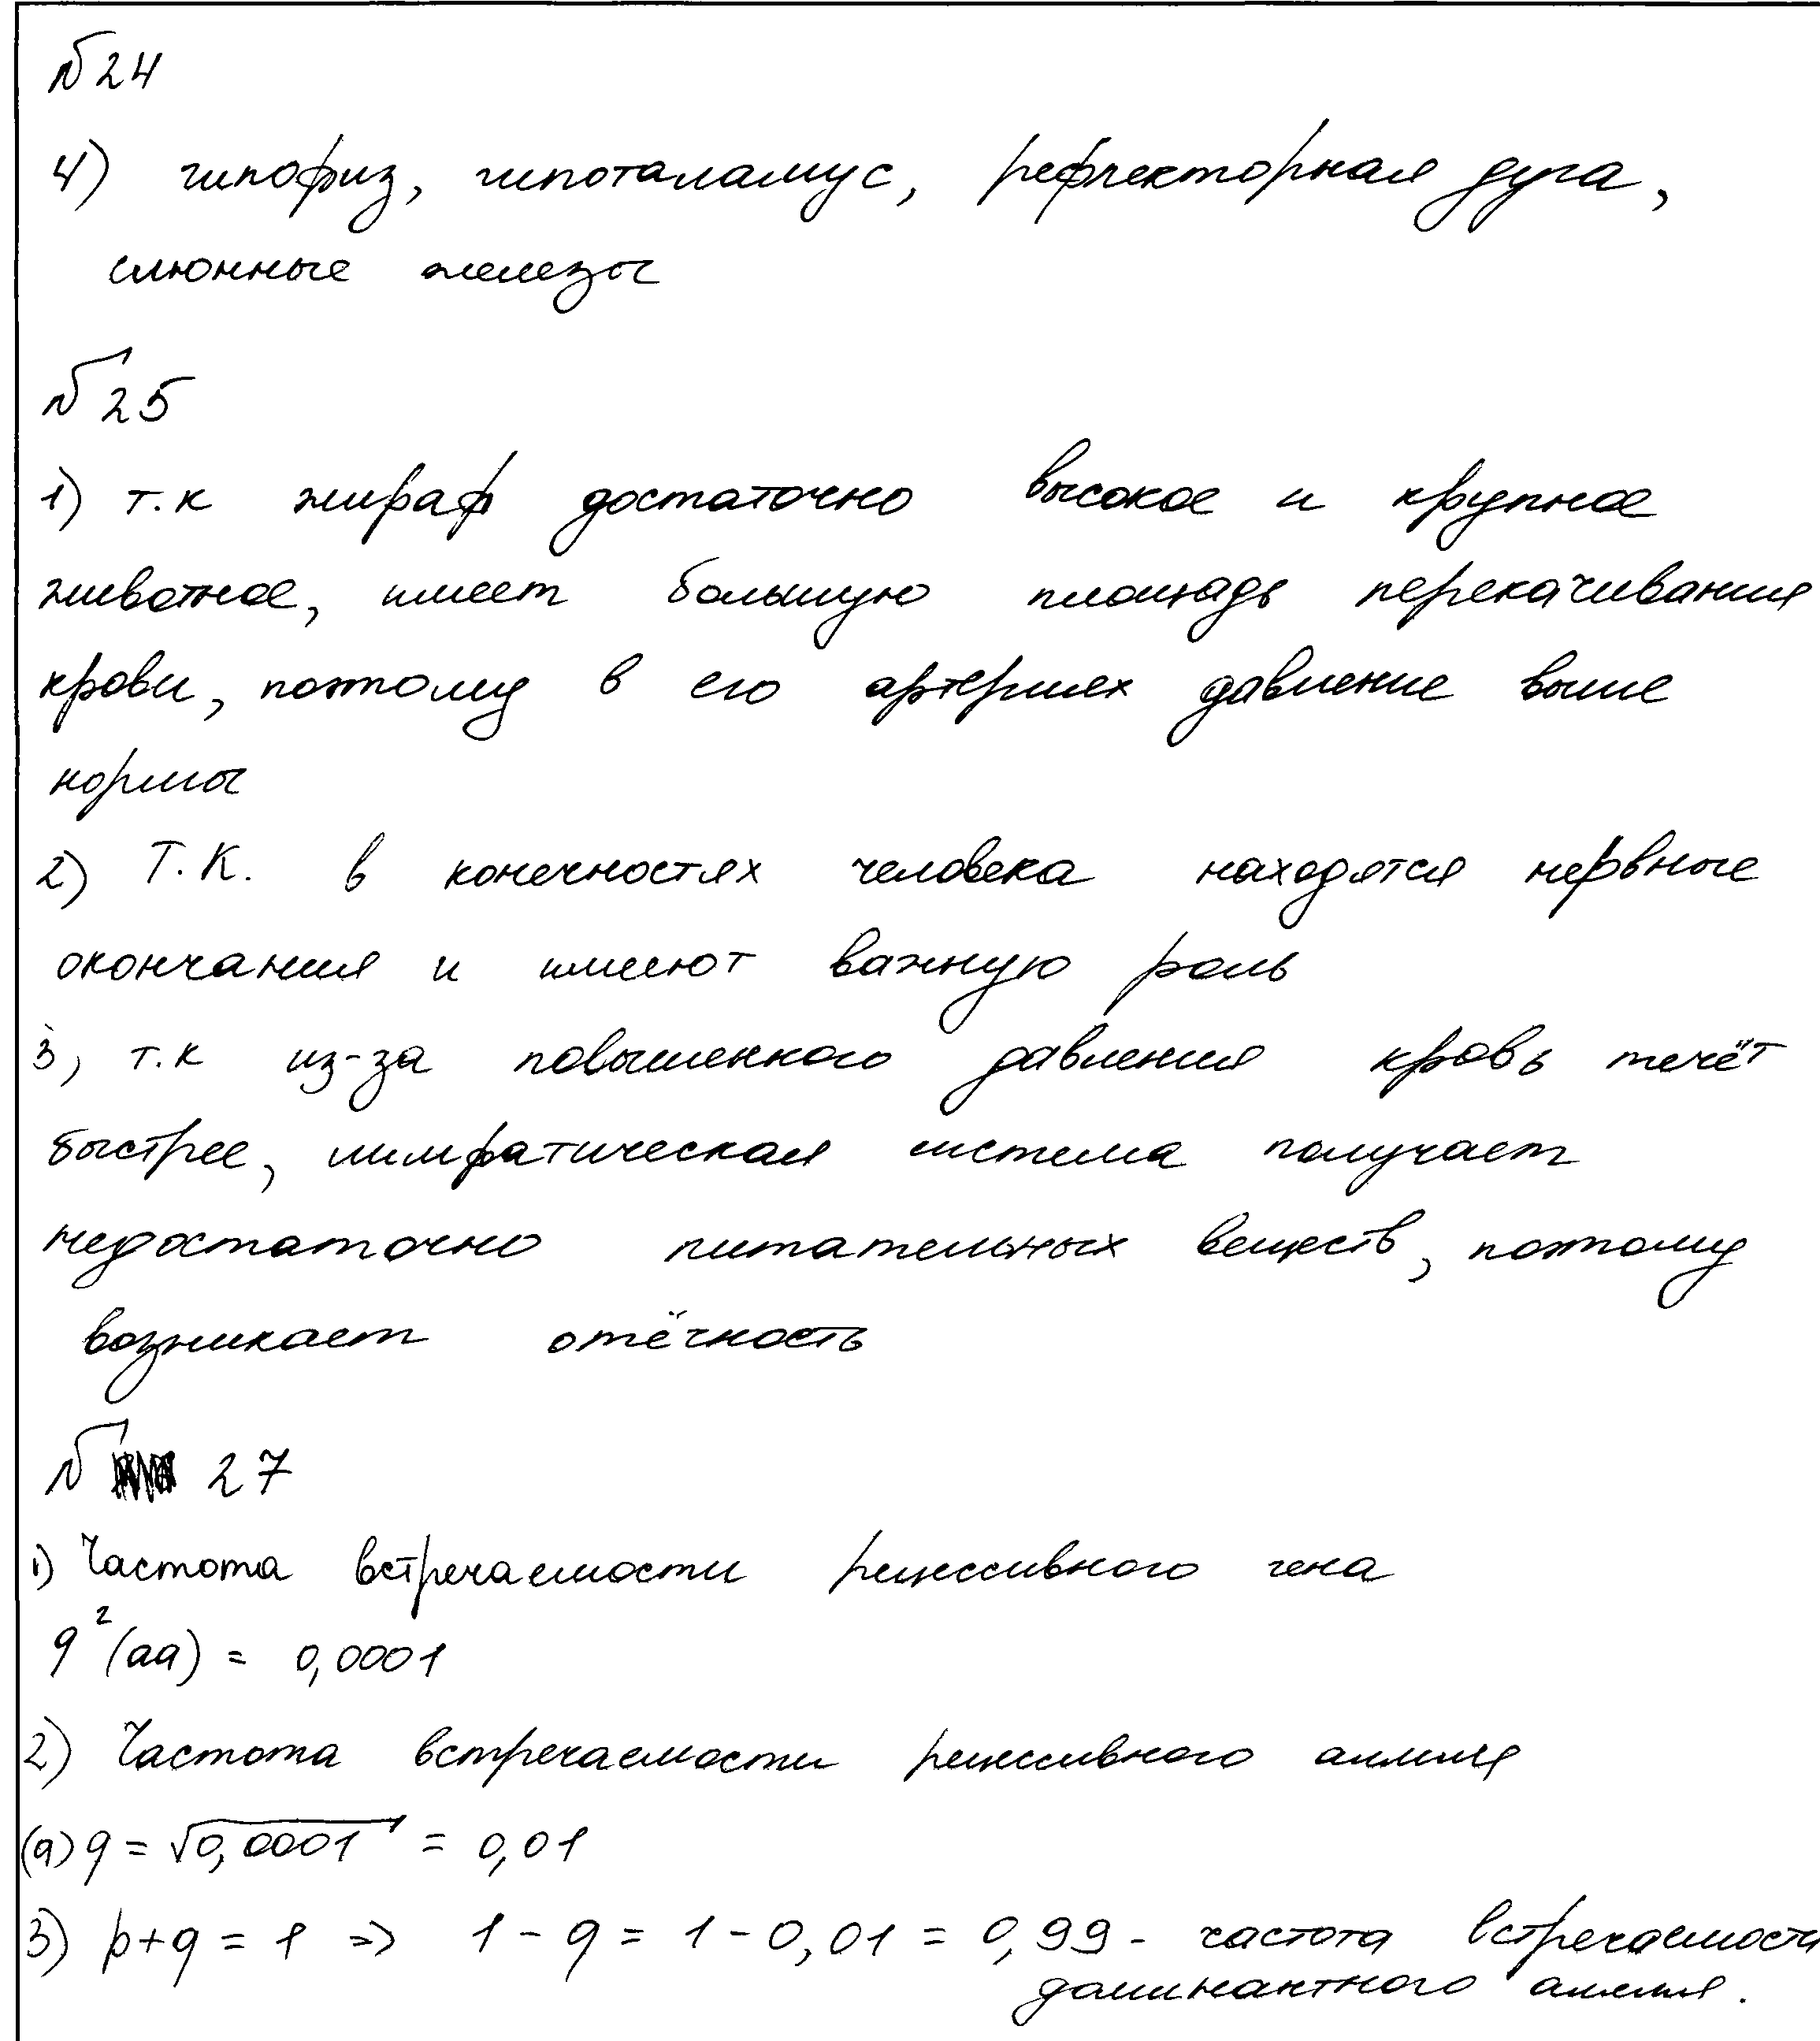 № 24
4) гипофиз, гипоталамус, рефлекторная дуга,
слюнные железы
№ 25
1) т.к жираф достаточно высокое и крупное
животное, имеет большую площадь перекачивания
крови, поэтому в его артериях давление выше
нормы
2) Т.К. в конечностях человека находятся нервные
окончания и имеют важную роль
3) т.к из-за повышенного давления кровь течёт
быстрее, лимфатическая система получает
недостаточно питательных веществ, поэтому
возникает отёчность
№ 27
1) Частота встречаемости рецессивного гена
q² (aa) = 0,0001
2) Частота встречаемости рецессивного аллеля
(a) q = √0,0001 = 0,01
3) p+q = 1 => 1 - q = 1 - 0,01 = 0,99 - частота встречаемости
доминантного аллеля.